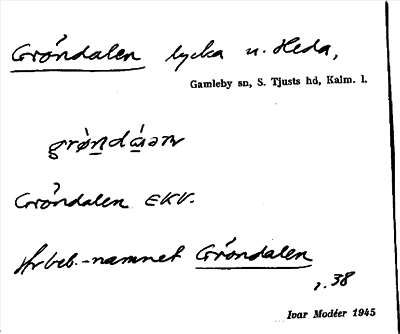 Gröndalen lycka u. Heda,
Gamleby sn, S. Tjusts hd, Kalm. l.
grǿndáən
Gröndalen EKV.
Arbeb.-namnet Gröndalen
s. 38
Ivar Modéer 1945